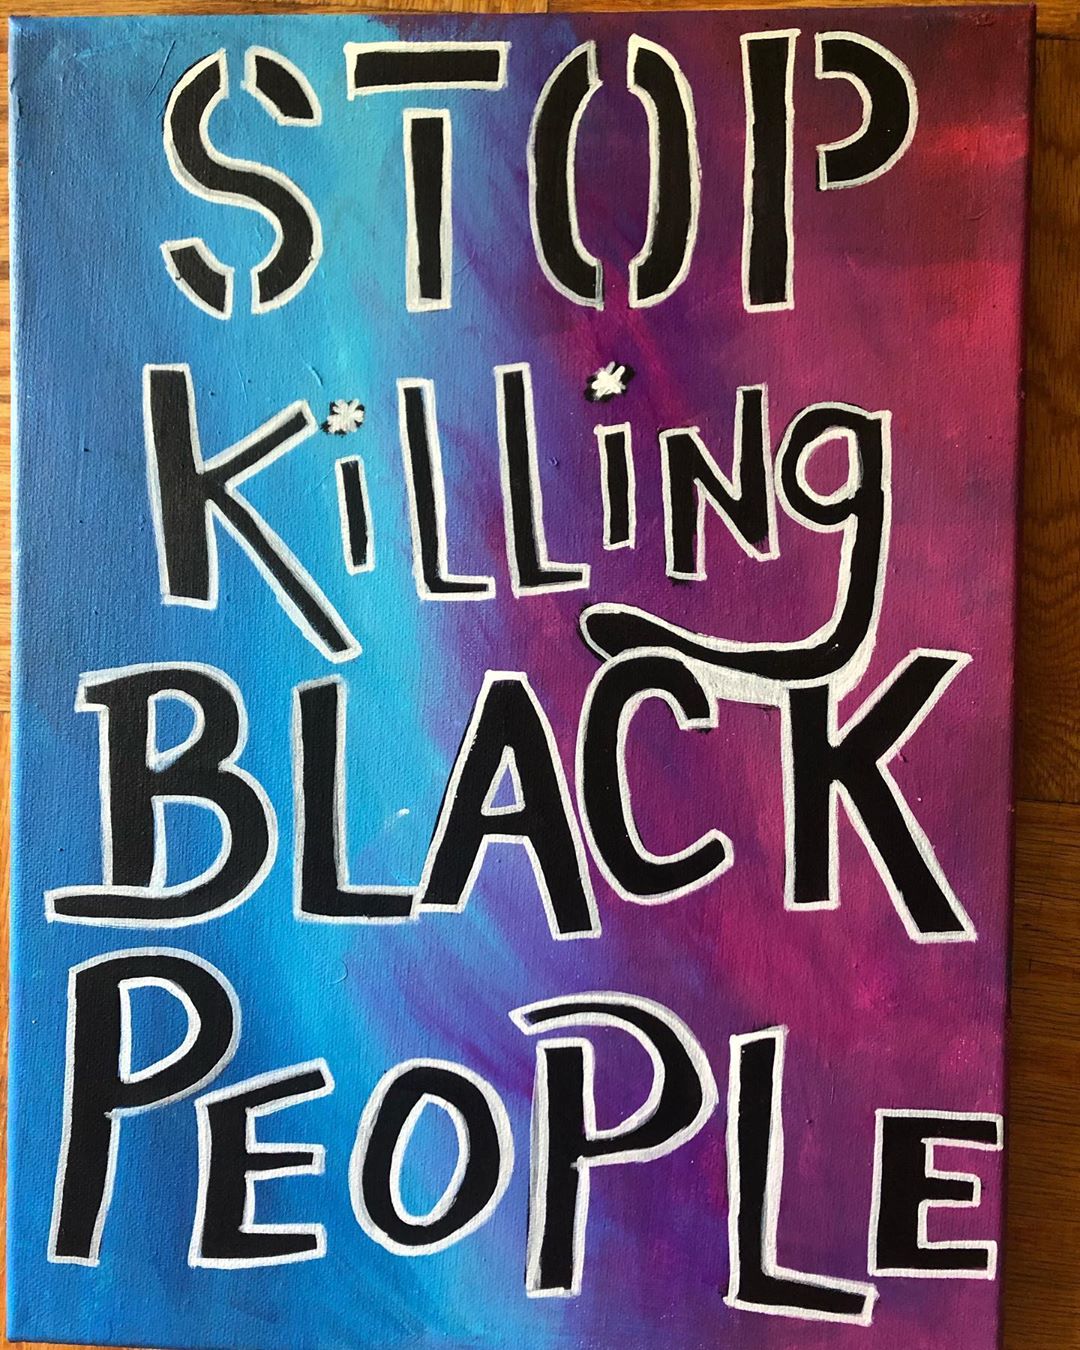 STOP
KiLLiNg
BLACK
PEOPLE